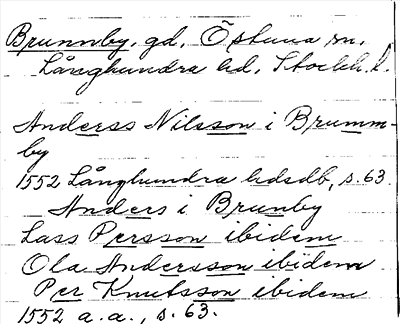 Brunnby, gd, Östuna sn,
Långhundra hd, Stockh. l.
Anderss Nilsson i Brumm-
by
1552 Långhundra hdsdb, s. 63
Anders i Brunby
Lass Persson ibidem
Ola Andersson ibidem
Per Knutsson ibidem
1552 a.a., s. 63.